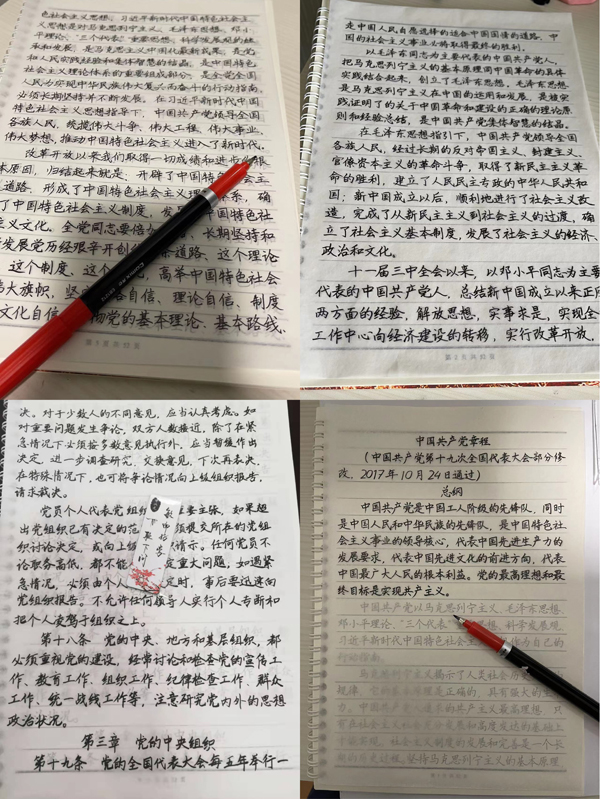 色社会主义思想。习近平新时代中国特色社会主
义思想是对马克思列宁主义、毛泽东思想、邓小
平理论、“三个代表”重要思想、科学发展观的继
承和发展,是马克思主义中国化最新成果,是党
和人民实践经验和集体智慧的结晶,是中国特色
社会主义理论体系的重要组成部分,是全党全国
人民为实现中华民族伟大复兴而奋斗的行动指南,
必须长期坚持并不断发展。在习近平新时代中国
特色社会主义思想指导下,中国共产党领导全国
各族人民,统揽伟大斗争、伟大工程、伟大事业、
伟大梦想,推动中国特色社会主义进入了新时代。
改革开放以来我们取得一切成绩和进步的根
本原因,归结起来就是:开辟了中国特色社会主
道路,形成了中国特色社会主义理论体系,确
了中国特色社会主义制度,发 中国特色社
主义文化。全党同志要倍加 长期坚持和
发展党历经艰辛开创的 条道路、这个理论
这个制度、这个 高举中国特色社会
大旗帜,坚 自信、理论自信、制度
文化自信 彻党的基本理论、基本路线、
第5页共52页
是中国人民自愿选择的适合中国国情的道路,中
国的社会主义事业必将取得最终的胜利。
以毛泽东同志为主要代表的中国共产党人,
把马克思列宁主义的基本原理同中国革命的具体
实践结合起来,创立了毛泽东思想。毛泽东思想
是马克思列宁主义在中国的运用和发展,是被实
践证明了的关于中国革命和建设的正确的理论原
则和经验总结,是中国共产党集体智慧的结晶。
在毛泽东思想指引下,中国共产党领导全国
各族人民,经过长期的反对帝国主义、封建主义、
官僚资本主义的革命斗争,取得了新民主主义革
命的胜利,建立了人民民主专政的中华人民共和
国;新中国成立以后,顺利地进行了社会主义改
造,完成了从新民主主义到社会主义的过渡,确
立了社会主义基本制度,发展了社会主义的经济、
政治和文化。
十一届三中全会以来,以邓小平同志为主要
代表的中国共产党人,总结新中国成立以来正反
两方面的经验,解放思想,实事求是,实现全
工作中心向经济建设的转移,实行改革开放,
第2页共52页
决。对于少数人的不同意见,应当认真考虑。如
对重要问题发生争论,双方人数接近,除了在紧
急情况下必须按多数意见执行外,应当暂缓作出
决定,进一步调查研究,交换意见,下次再表决;
在特殊情况下,也可将争论情况向上级组织报告,
请求裁决。
党员个人代表党组 重要主张,如果超
出党组织已有决定的范 须提交所在的党组
织讨论决定,或向上级 请示。任何党员不
论职务高低,都不能 定重大问题;如遇紧
急情况,必须由个人 定时,事后要迅速向
党组织报告。不允许任何领导人实行个人专断和
把个人凌驾于组织之上。
第十八条 党的中央、地方和基层组织,都
必须重视党的建设,经常讨论和检查党的宣传工
作、教育工作、组织工作、纪律检查工作、群众
工作、统一战线工作等,注意研究党内外的思想
政治状况。
第三章 党的中央组织
第十九条 党的全国代表大会每五年举行一
中国共产党章程
(中国共产党第十九次全国代表大会部分修
改,2017年10月24日通过)
总纲
中国共产党是中国工人阶级的先锋队,同时
是中国人民和中华民族的先锋队,是中国特色社
会主义事业的领导核心,代表中国先进生产力的
发展要求,代表中国先进文化的前进方向,代表
中国最广大人民的根本利益。党的最高理想和最
终目标是实现共产主义。
中国共产党以马克思列宁主义、毛泽东思想、
邓小平理论、“三个代表” 思想、科学发展观、
习近平新时代中国特色社会 作为自己的
行动指南。
马克思列宁主义揭示了人类社会历史
规律,它的基本原理是正确的,具有强大的生
力。中国共产党人 共产主义最高理想,只
有在社会主义社会充分发展和高度发达的基础上
才能实现。社会主义制度的发展和完善是一个长
期的历史过程。坚持马克思列宁主义的基本原理